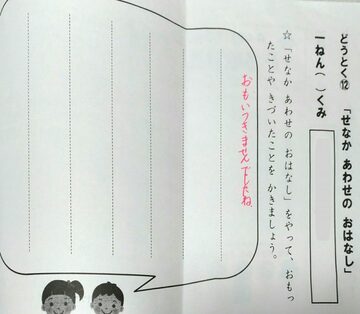 どうとく⑫　「せなか あわせの おはなし」
一ねん（　）くみ
☆「せなか あわせの おはなし」をやって、おもっ
たことや きづいたことを かきましょう。
おもいつきませんでしたね